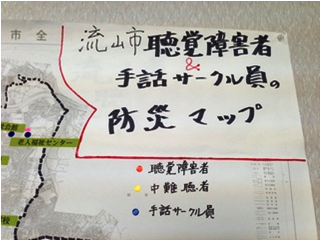 全
市
流山市聴覚障害者
&
手話サークル員の
防災マップ
老人福祉センター
聴覚障害者
中難聴者
手話サークル員
校